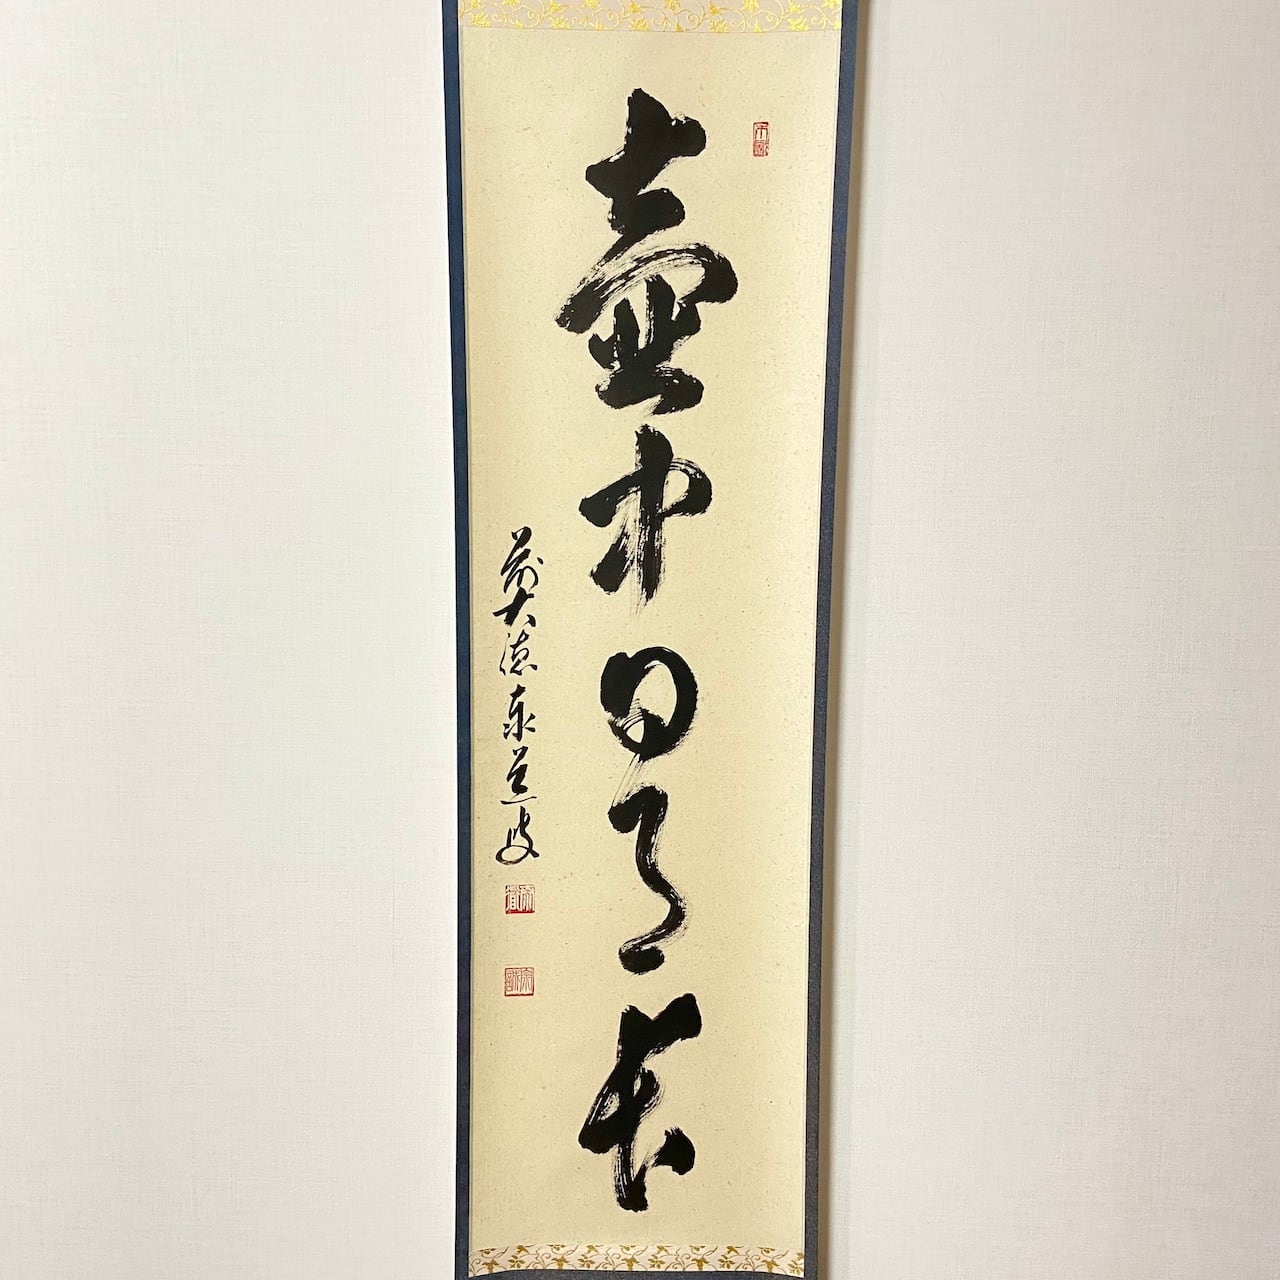 壺中日月長
前大徳泰道叟